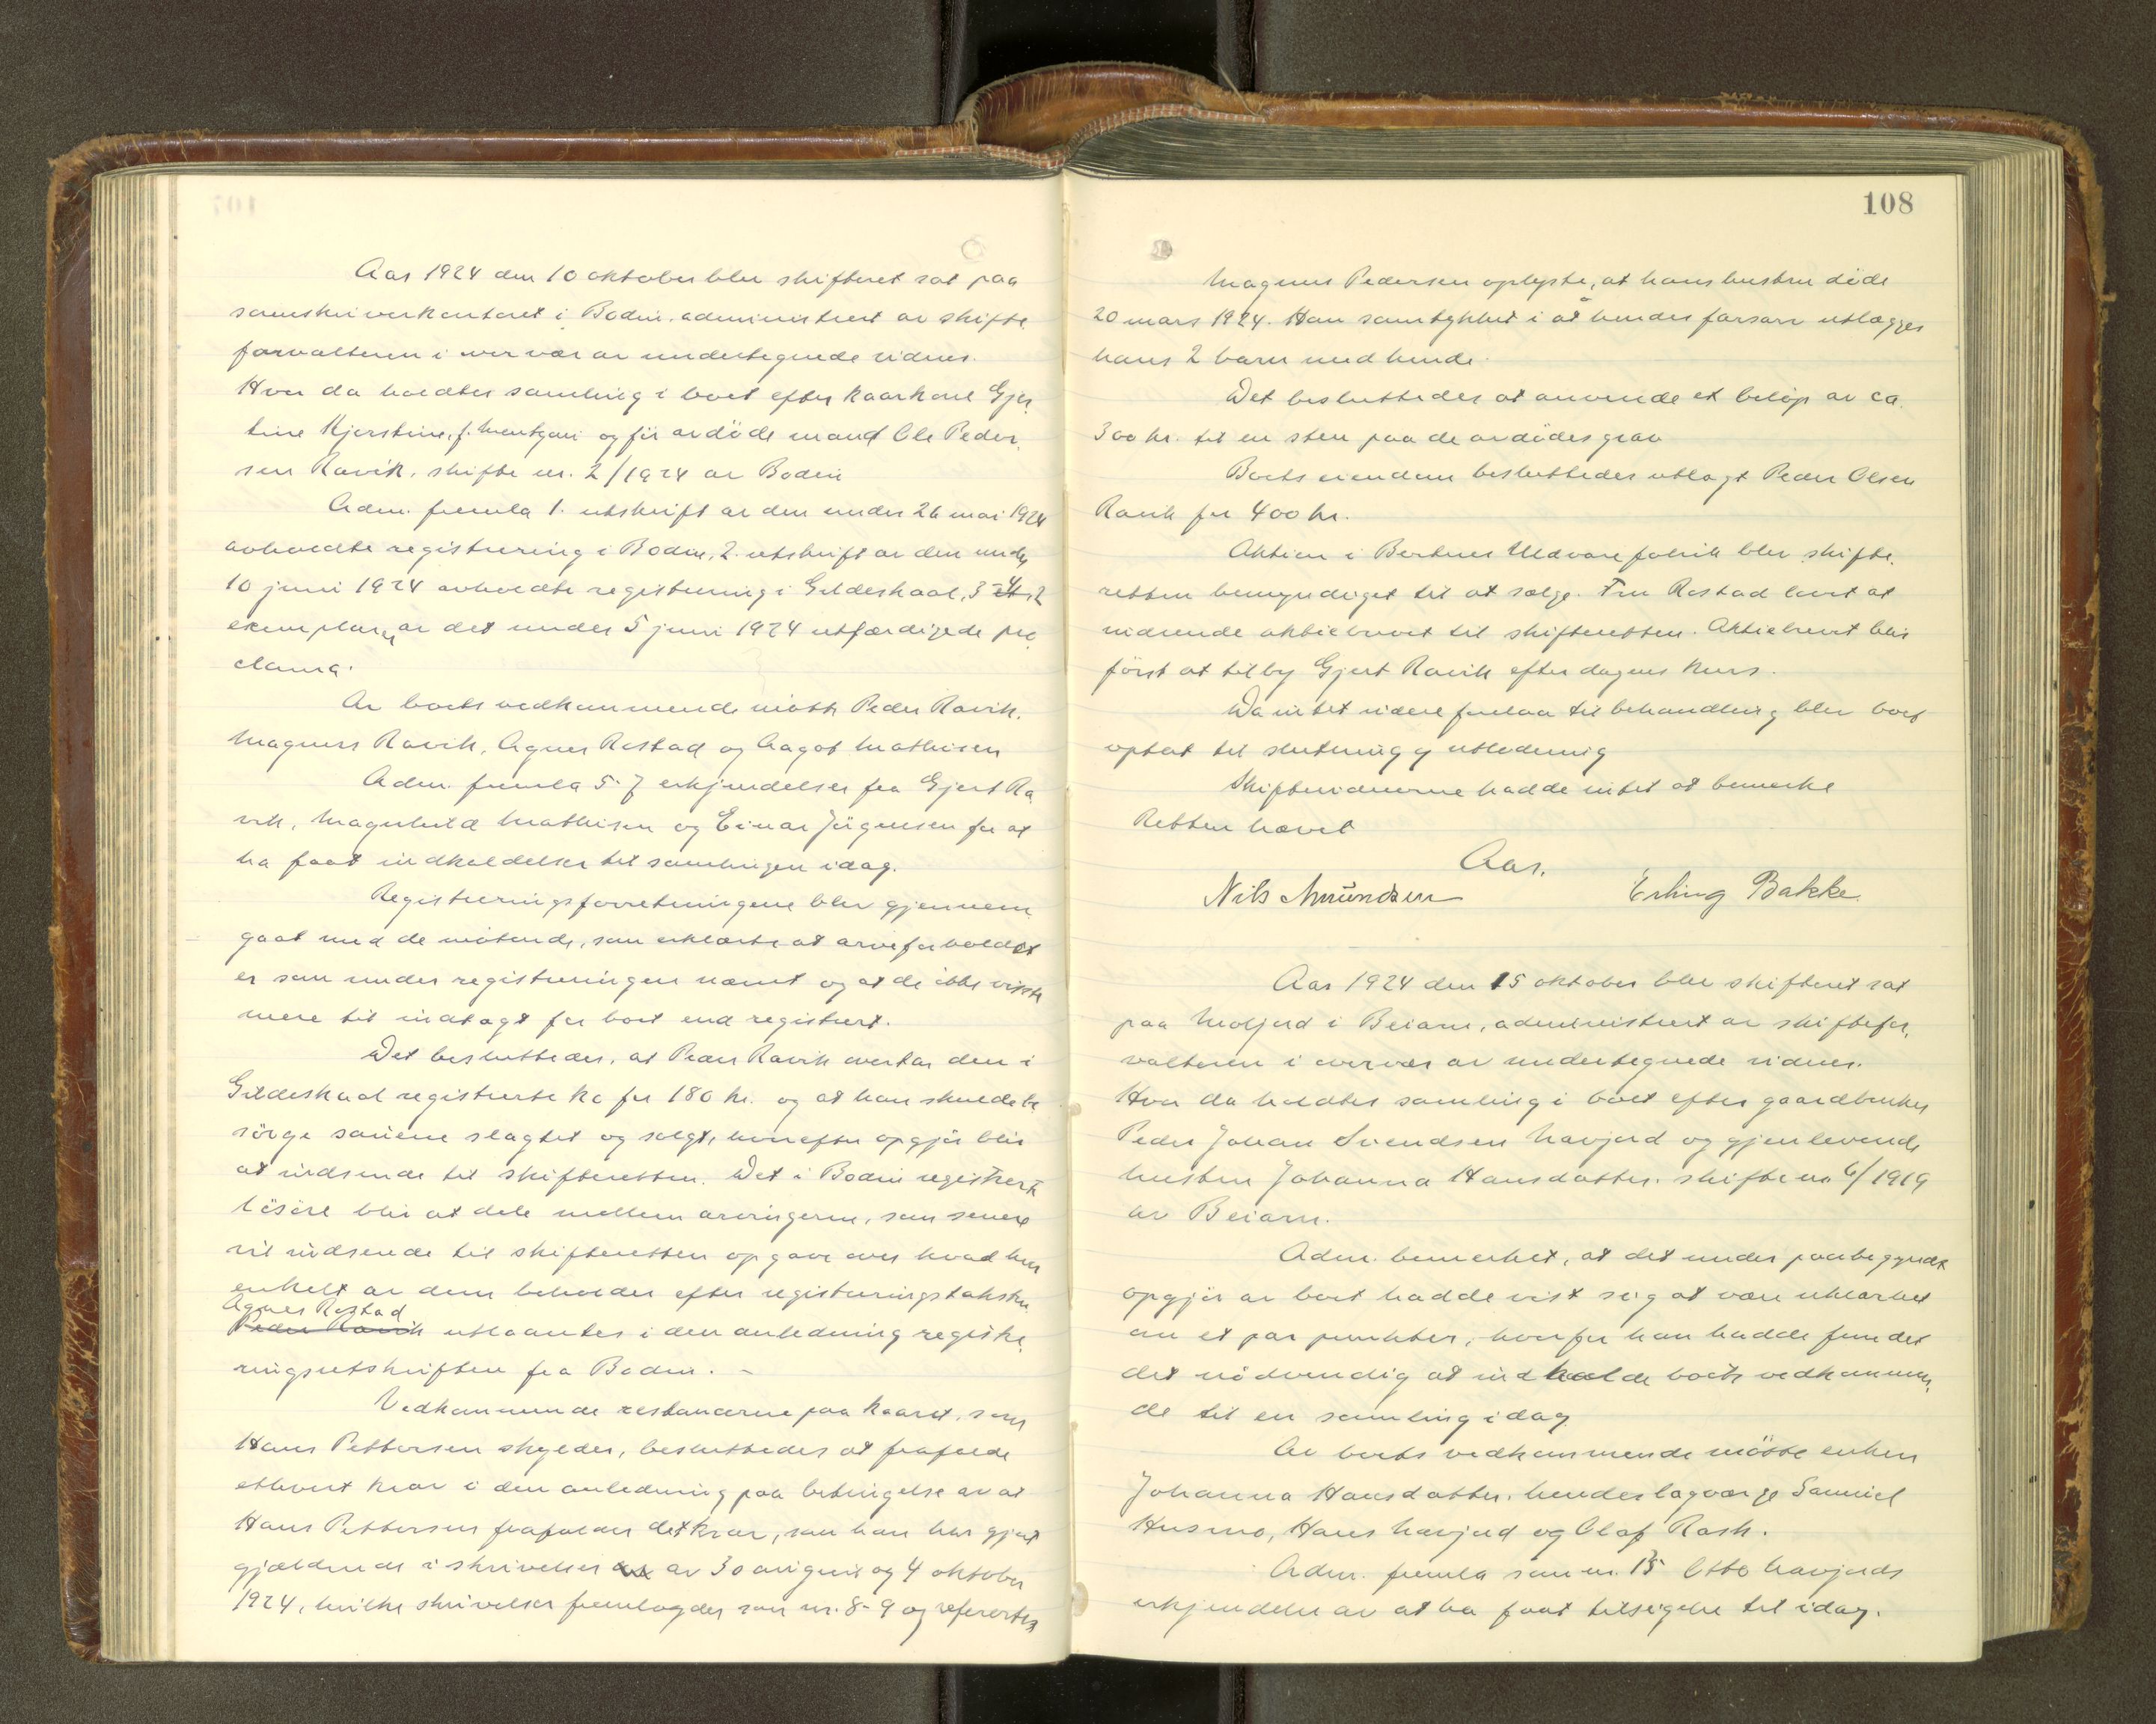 Aar 1924 den 10 oktober blev skifteret sat paa
sorenskriverkontoret i Bodin. administrert av skifte
forvalteren i overvær av undertegnede vidner.
Hvor da holdtes samling i boet efter kaarkone Gjer
tine Kjerstine, f. Mentzoni og før avdøde mand Ole Peder
sen Ravik. skifte nr. 2/1924 av Bodin
Adm. fremla 1. utskrift av den under 26 mai 1924
avholdte registrering i Bodin, 2. utskrift av den under
10 juni 1924 avholdte registrering i Gildeskaal, 3-4 2
eksemplarer av det under 5 juni 1924 utfærdigede pro
clama.
Av boets vedkommende møtte Peder Ravik.
Magnus Ravik, Agnes Rostad og Aagot Mathisen
Adm. fremla 5-7 erkjendelser fra Gjert Ra
vik, Magnhild Mathisen og Einar Jörgensen for at
ha faat indkaldelser til samlingen idag.
Registreringsforretningene blev gjennem
gaat med de møtende, som erklærte at arveforholdet
er som under registreringen nævnt og at de ikke visste
mere til indtægt for boet end registrert.
Det besluttedes, at Peder Ravik overtar den i
Gildeskaal registrerte ko for 180 kr. og at han skulde la
sörge sauene slagtet og solgt, hvorefter opgjør blir
at indsende til skifteretten. Det i Bodin registrerte
lösöre blir at dele mellem arvingerne, som senere
vil indsende til skifteretten opgave over hvad hver
enkelt av dem beholder efter registreringstaksten
Agnes Rostad
Peder Ravik utlaantes i den anledning registre
ringsutskriften fra Bodin. -
Vedkommende restancerne paa kaaret, som
Hans Pettersen skylder, besluttedes at frafalde
ethvert krav i den anledning paa betingelse av at
Hans Pettersen frafalder det krav, som han har gjort
gjældende i skrivelser av 30 august og 4 oktober
1924, hvilke skrivelser fremlagdes som nr. 8-9 og refertes
108
Magnus Pedersen oplyste, at hans hustru döde
20 mars 1924. Han samtykket i at hendes farsarv utlægges
hans 2 barn med hende.
Det besluttedes at anvende et belöp av ca.
300 kr. til en sten paa de avdödes grav
Boets eiendom besluttedes utlagt Peder Olsen
Ravik for 400 kr.
Aktien i Uldvarefabrik blev skifte
retten bemyndiget til at sælge. Fru Rostad lovet at
indsende aktiebrevet til skifteretten. Aktiebrevet blir
først at tilby Gjert Ravik efter dagens kurs.
Da intet videre forelaa til behandling blev boet
optat til slutning og utlodning
Skiftevidnerne hadde intet at bemerke
Retten hævet
Aas.
Nils Amundsen Erling Bakke
Aar 1924 den 15 oktober blev skifteret sat
paa Moljord i Beiarn, administrert av skiftefor
valteren i overvær av undertegnede vidner.
Hvor da holdtes samling i boet efter gaardbruker
Peder Johan Svendsen Navjord og gjenlevende
hustru Johanna Hansdatter. skifte nr. 6/1919
av Beiarn.
Adm. bemerket, at det under paabegyndt
opgjør av boet hadde vist sig at være uklarhet
om et par punkter, hvorfor han hadde fundet
det nödvendig at indkalde boets vedkommen
de til en samling idag.
Av boets vedkommende mötte enken
Johanna Hansdatter. hendes lagværge Samuel
Husmo, Hans Navjord og Olaf Rask.
Adm. fremla som nr. 15 Otto Navjords
erkjendelse av at ha faat tilsigelse til idag.